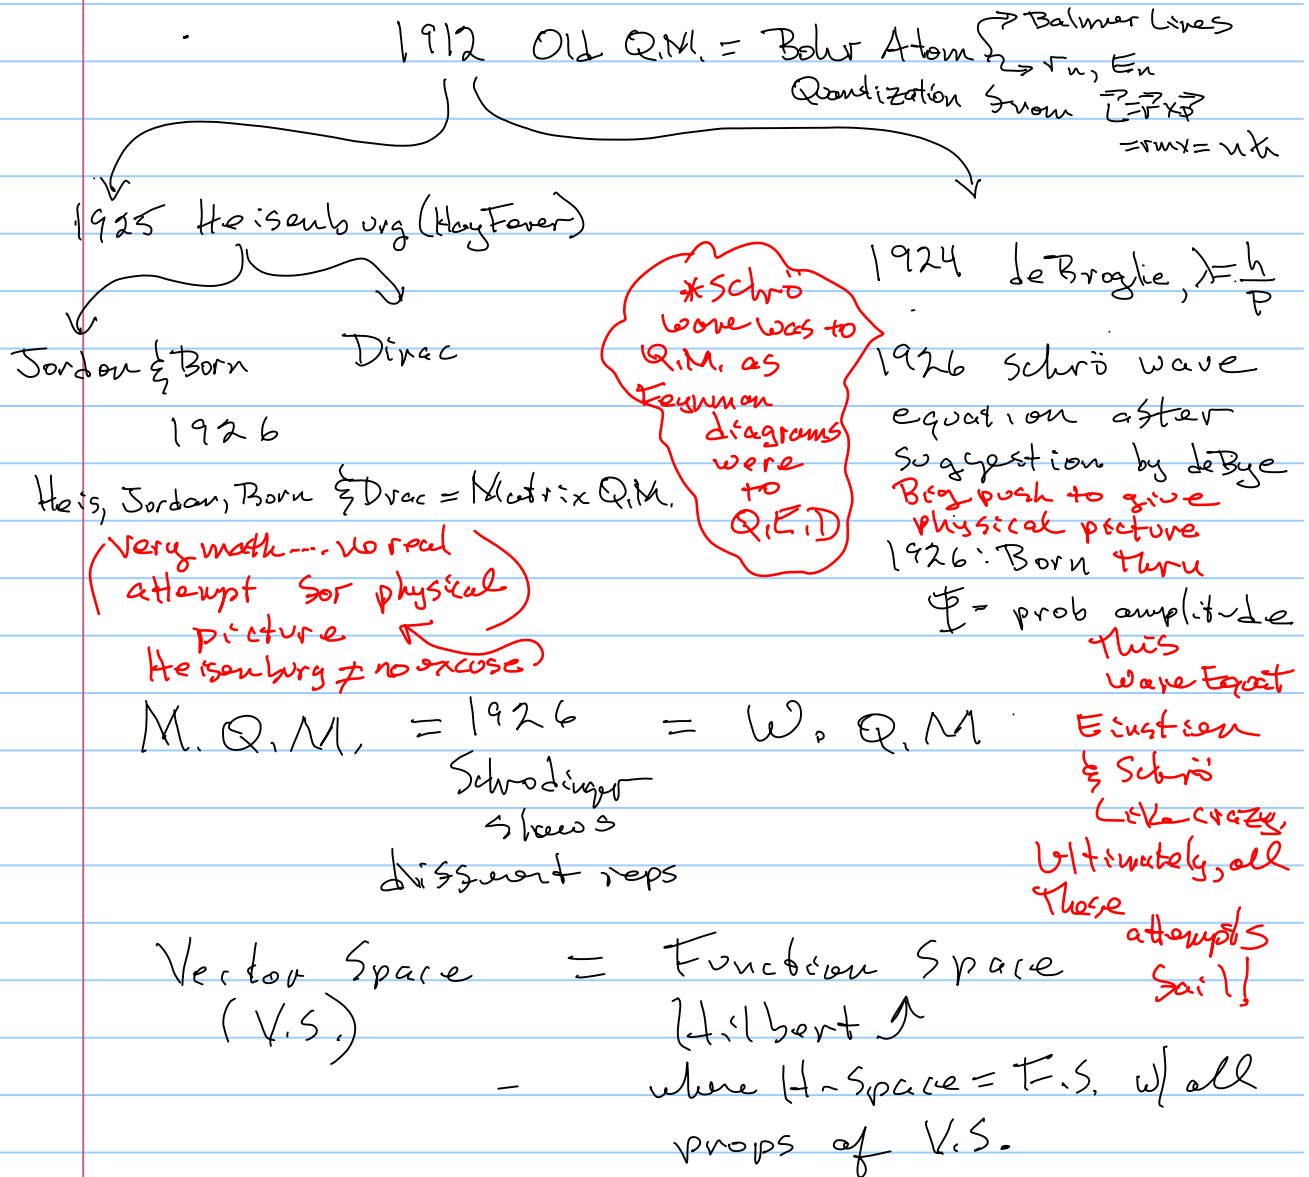 1912 Old Q.M. = Bohr Atom → Balmer Lines
→ rn, En
Quantization from L⃗=r⃗×p⃗
=rmv=nħ
1925 Heisenburg (Hay Fever)
Jordon & Born
Dirac
1926
Heis, Jordan, Born & Drac = Matrix Q.M.
(Very math.... no real
attempt for physical
picture)
Heisenburg ≠ no excuse
*Schrö
wave was to
Q.M. as
Feynman
diagrams
were
to
Q.E.D
1924 deBroglie, λ=h/p
1926 Schrö wave
equation after
suggestion by deBye
Big push to give
physical picture
1926: Born thru
Ψ = prob amplitude
This
wave Equat
Einstien
& Schrö
Like crazy.
Ultimately, all
these
attempts
fail!
M. Q.M. = 1926 = W. Q.M
Schrodinger
shows
different reps
Vector Space = Function Space
(V.S.)
Hilbert ↑
where H-Space = F.S. w/ all
props of V.S.